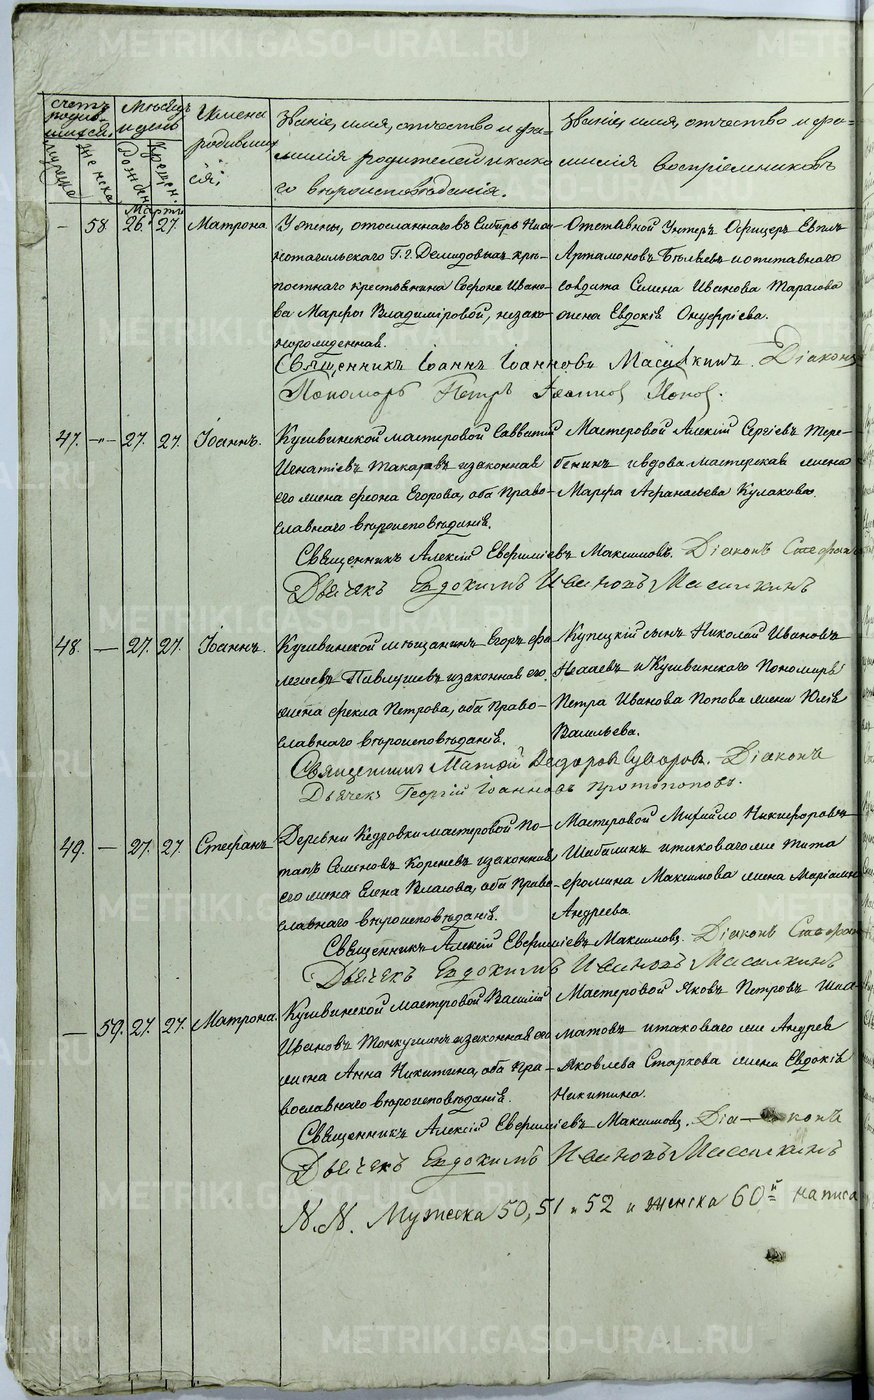 METRIKI.GASO-URAL.RU
Счетъ родив-шихся.
Мѣсяцъ и день
Имена родивших-ся;
Званіе, имя, отчество и фа-
милія родителей и како-
го вѣроисповѣданія.
Званіе, имя, отчество и фа-
милія воспріемниковъ
Мужеска
Женска
Рожден.
Крещен.
Марта
— 58 26. 27. Матрона
У жены, отосланнаго въ Сибирь Ниж-
нетагильскаго Г.г. Демидовыхъ крѣ-
постнаго крестьянина Софрона Ивано-
ва Марѳы Владиміровой, незако-
норожденная.
Отставной Унтеръ Офицеръ Евплъ
Артамоновъ Бѣляевъ и отставнаго
солдата Семена Иванова Тарасова
жена Евдокія Онуфріева.
Священникъ Іоаннъ Іоанновъ Діаконъ
Пономарь Петръ Іоанновъ Поповъ.
47. —„— 27. 27. Іоаннъ.
Кушвинской мастеровой Савватій
Игнатіевъ Макаровъ и законная
его жена Ѳеона Егорова, оба Право-
славнаго вѣроисповѣданія.
Мастеровой Алексій Сергіевъ Тере-
бенинъ и вдова мастерская жена
Марѳа Аѳанасьева Кулакова.
Священникъ Алексій Евфиміевъ Максимовъ. Діаконъ Стефанъ
Дьячекъ Евдокимъ Ивановъ
48. — 27. 27. Іоаннъ.
Кушвинской мѣщанинъ Егоръ Фа-
лѣевъ Павлушевъ и законная его
жена Ѳекла Петрова, оба Право-
славнаго вѣроисповѣданія.
Купецкій сынъ Николай Ивановъ
Исаевъ и Кушвинскаго Пономаря
Петра Иванова Попова жена Юлія
Васильева.
Священникъ Матѳій Ѳедоровъ Суворовъ. Діаконъ
Дьячекъ Георгій Іоанновъ Протопоповъ.
49. — 27. 27. Стефанъ
Деревни Кедровки мастеровой По-
тапъ Семеновъ Кореневъ и законная
его жена Елена Власова, оба Право-
славнаго вѣроисповѣданія.
Мастеровой Михайло Никифоровъ
Шабалинъ и таковаго же Тита
Ѳомина Максимова жена Маріамна
Андреева.
Священникъ Алексій Евфиміевъ Максимовъ. Діаконъ Стефанъ
Дьячекъ Евдокимъ Ивановъ
— 59. 27. 27. Матрона.
Кушвинской мастеровой Василій
Ивановъ Тонкушинъ и законная его
жена Анна Никитина, оба Пра-
вославнаго вѣроисповѣданія.
Мастеровой Яковъ Петровъ Шма-
матовъ и таковаго же Андрея
Яковлева Старкова жена Евдокія
Никитина.
Священникъ Алексій Евфиміевъ Максимовъ. Діа—конъ
Дьячекъ Евдокимъ Ивановъ
N.N. Мужеска 50, 51 и 52 и женска 60й написа